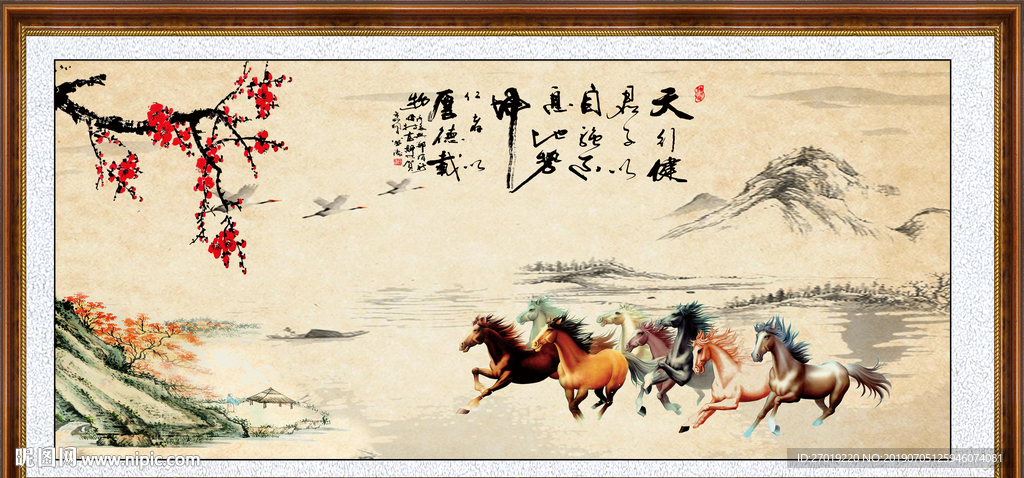 天行健
君子以
自强不
息地势
坤
仁者以
厚德載
物
昵图网 www.nipic.com
ID:27019220 NO:20190705125946074081